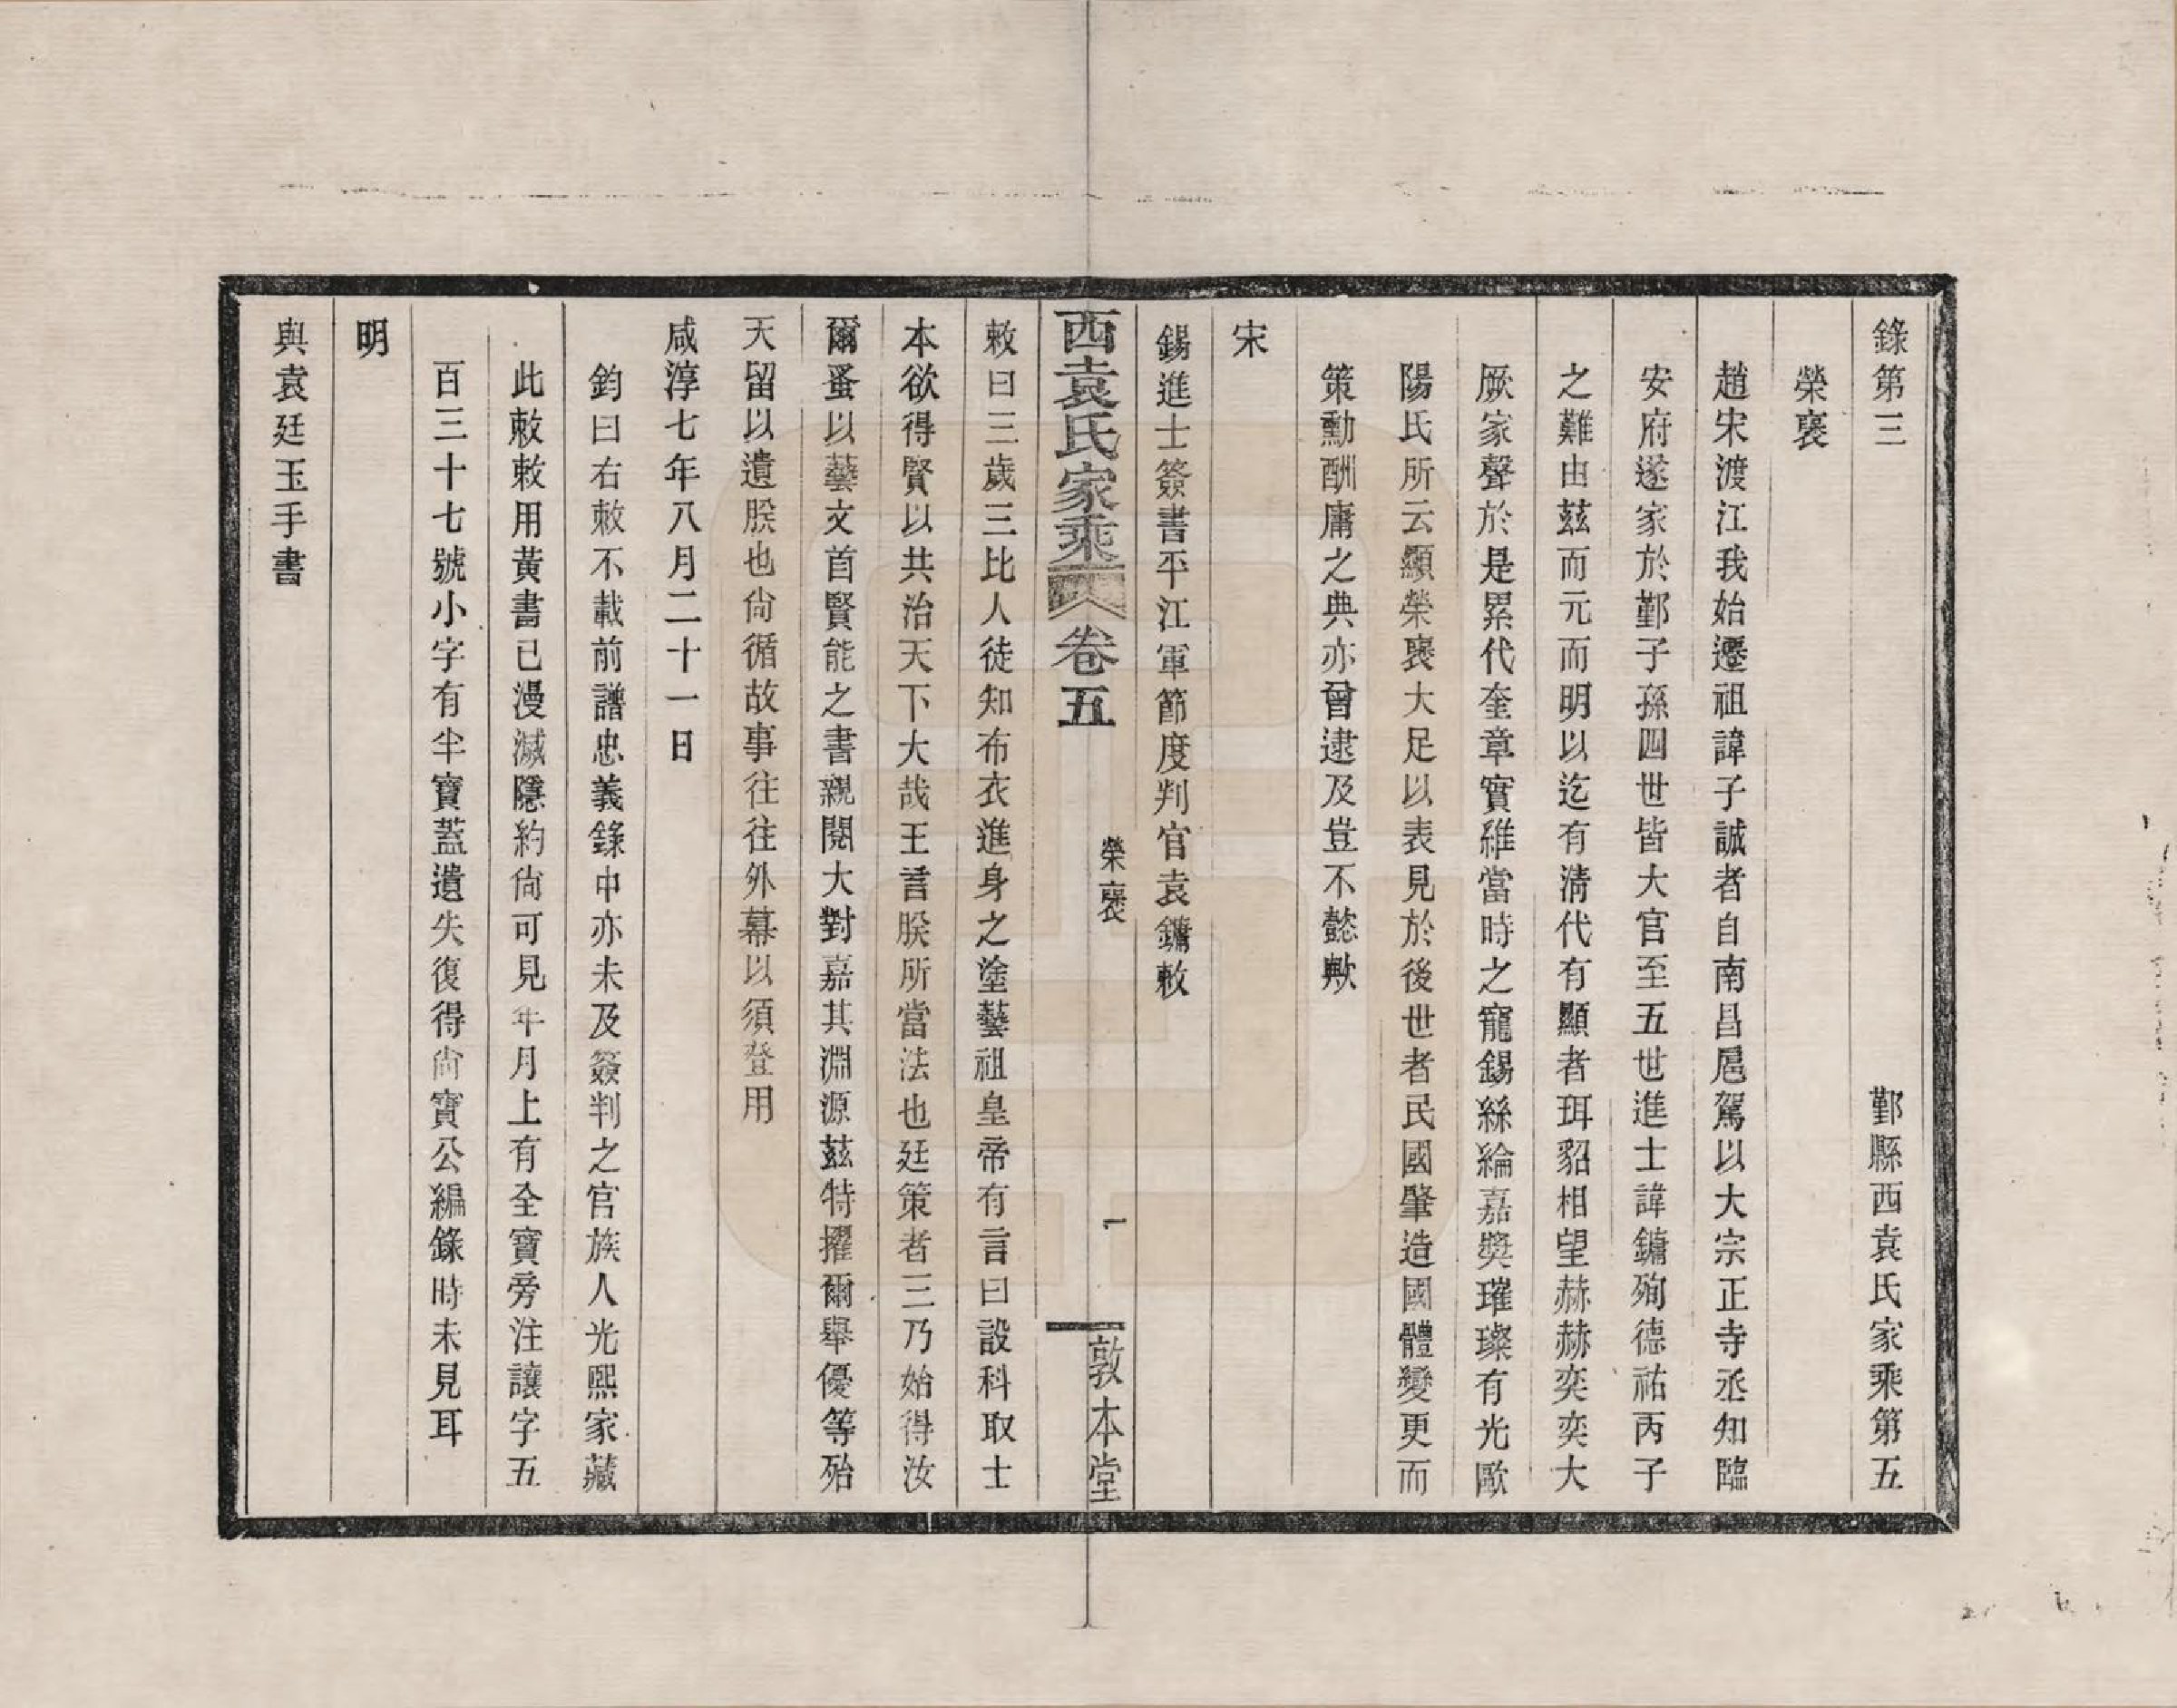 錄第三　鄞縣西袁氏家乘第五
榮襃
趙宋渡江我始遷祖諱子誠者自南昌扈駕以大宗正寺丞知臨
安府遂家於鄞子孫四世皆大官至五世進士諱鏞殉德祐丙子
之難由茲而元而明以迄有淸代有顯者珥貂相望赫赫奕奕大
厥家聲於是累代奎章實維當時之寵錫絲綸嘉奬璀璨有光歐
陽氏所云顯榮襃大足以表見於後世者民國肇造國體變更而
策勳酬庸之典亦曾逮及豈不懿歟
宋
錫進士簽書平江軍節度判官袁鏞敕
西袁氏家乘　卷五　榮襃　一　敦本堂
敕曰三歲三比人徒知布衣進身之塗藝祖皇帝有言曰設科取士
本欲得賢以共治天下大哉王言朕所當法也廷策者三乃始得汝
爾蚤以藝文首賢能之書親閱大對嘉其淵源茲特擢爾舉優等殆
天留以遺朕也尙循故事往往外幕以須登用
咸淳七年八月二十一日
鈞曰右敕不載前譜忠義錄中亦未及簽判之官族人光熙家藏
此敕敕用黃書書已漫滅隱約尙可見年月上有全寶旁注讓字五
百三十七號小字有半寶蓋遺失復得尙寶公編錄時未見耳
明
與袁廷玉手書